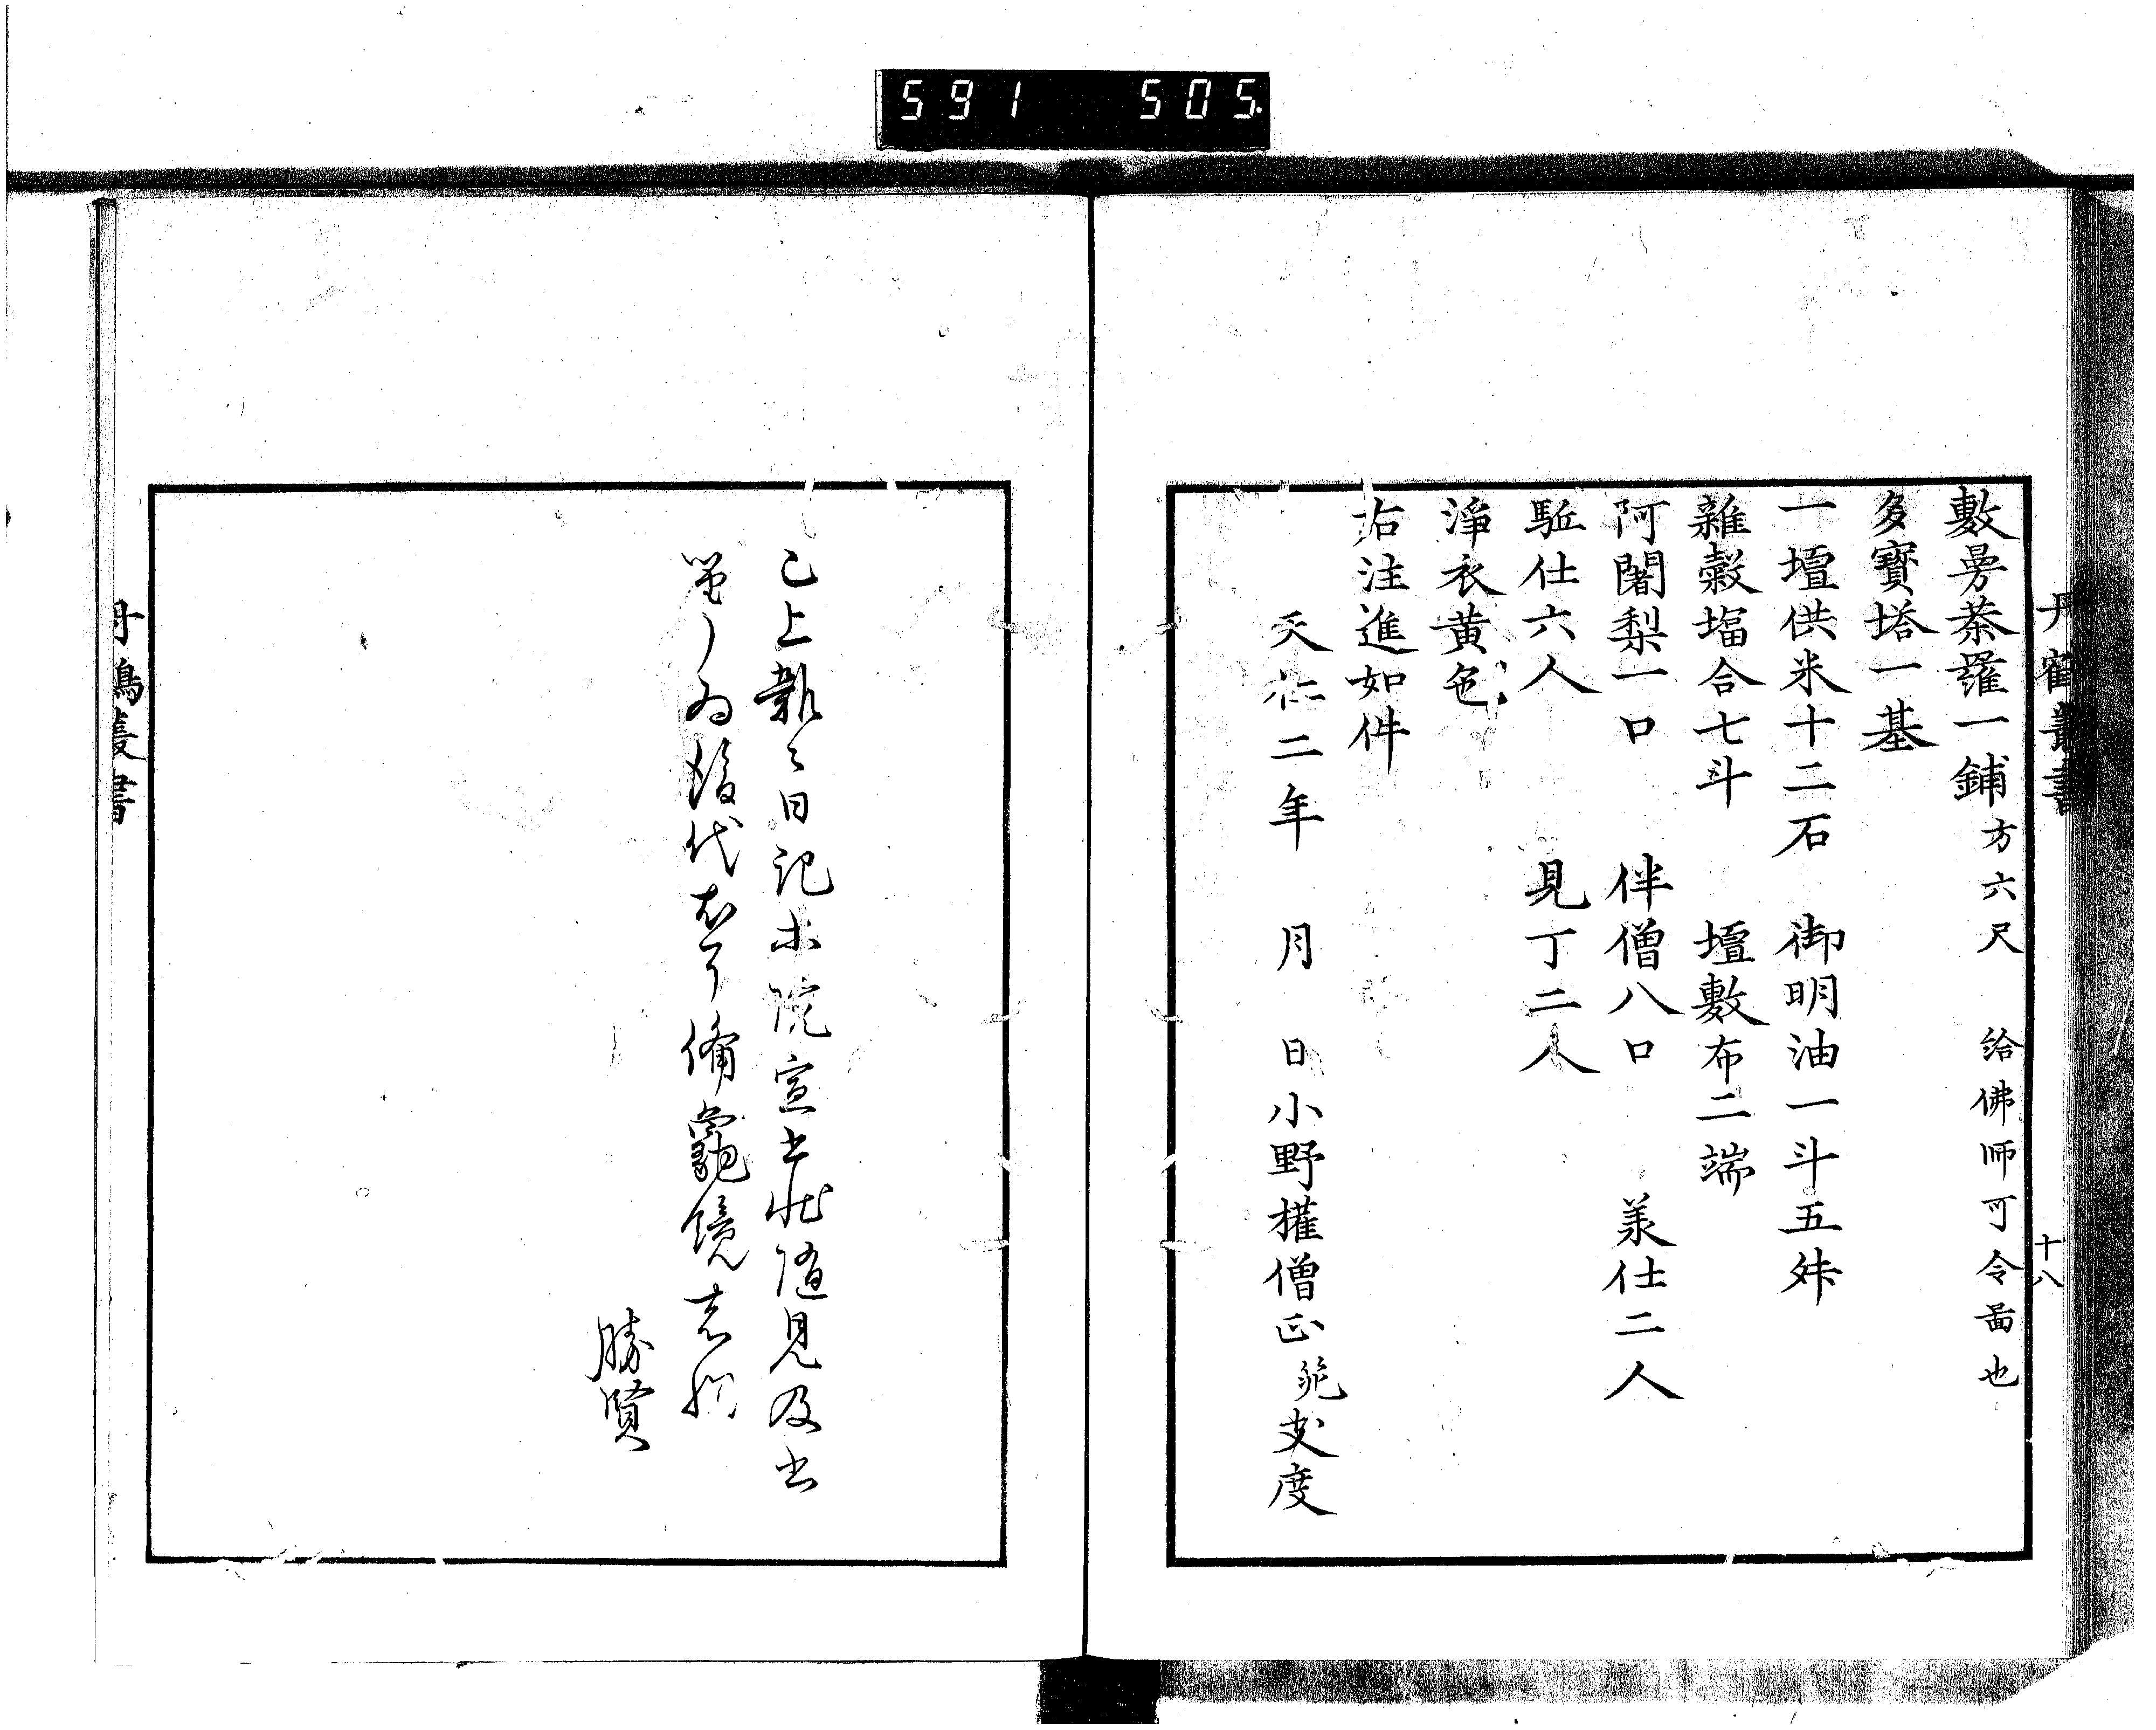 591 505
丹鶴叢書
十八
敷曼荼羅一鋪方六尺 給佛師可令畫也
多寶塔一基
一壇供米十二石 御明油一斗五舛
雜穀塩合七斗 壇敷布二端
阿闍梨一口 伴僧八口 羕仕二人
駈仕六人 見丁二人
淨衣黄色
右注進如件
天仁二年 月 日小野權僧正範支度
已上新々日記 院宣 状随見及
為後代 備龜鏡
勝賢
丹鶴叢書